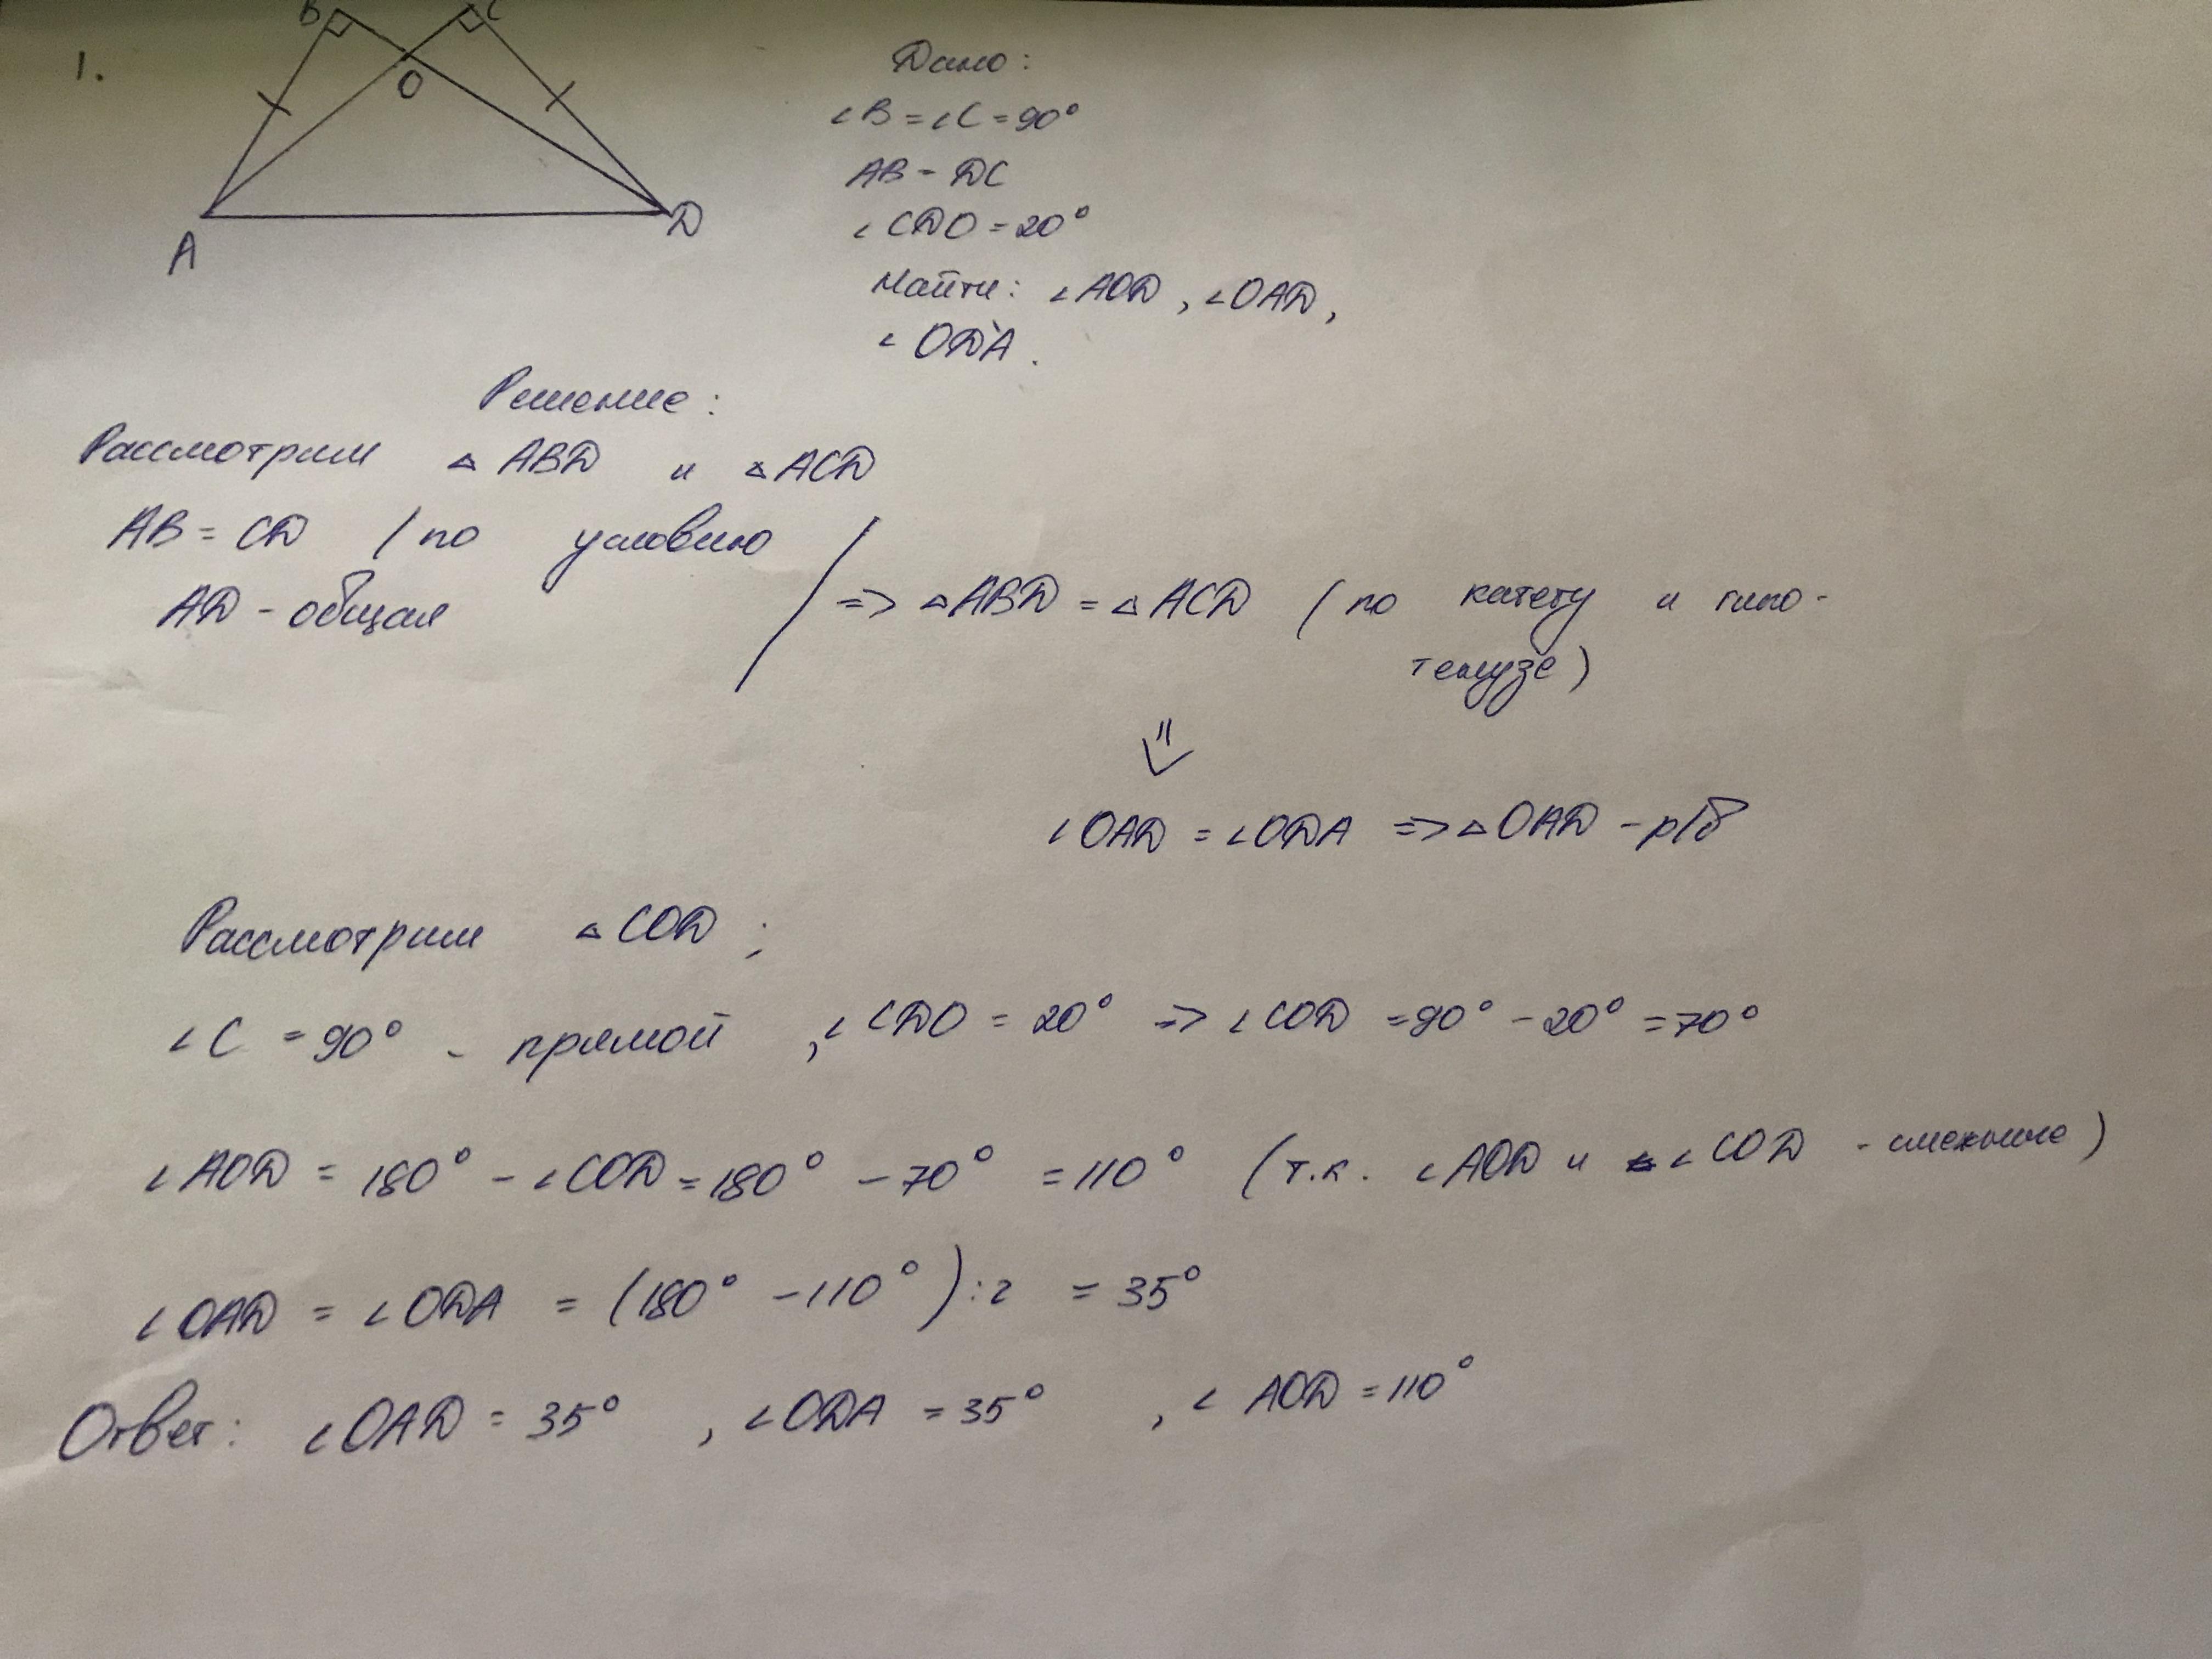 1.
B
C
O
A
D
Дано:
∠B = ∠C = 90°
AB = DC
∠CDO = 20°
Найти: ∠AOD, ∠OAD,
∠ODA.
Решение:
Рассмотрим △ABD и △ACD
AB = CD (по условию
AD - общая
=> △ABD = △ACD (по катету и гипо-
тенузе)
∠OAD = ∠ODA => △OAD - р/б
Рассмотрим △COD;
∠C = 90° - прямой, ∠CDO = 20° => ∠COD = 90° - 20° = 70°
∠AOD = 180° - ∠COD = 180° - 70° = 110° (т.к. ∠AOD и ∠COD - смежные)
∠OAD = ∠ODA = (180° - 110°):2 = 35°
Ответ: ∠OAD = 35°, ∠ODA = 35°, ∠AOD = 110°